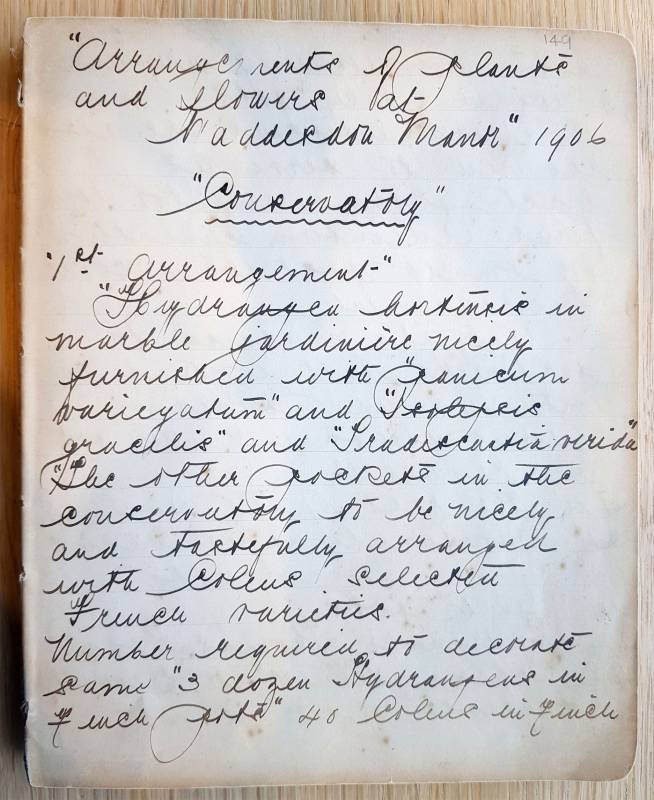 149
"Arrangements of plants
and flowers at
Waddesdon Manor" 1906
"Conservatory"
"1st arrangement"
"Hydrangea hortensis in
marble jardinière nicely
furnished with "panicum
variegatum" and "Isolepsis
gracilis" and "Tradescantia virida"
"The other pockets in the
conservatory to be nicely
and tastefully arranged
with Coleus selected
French varieties.
Number required to decorate
same "3 dozen Hydrangeas in
7 inch pots" 40 Coleus in 7 inch